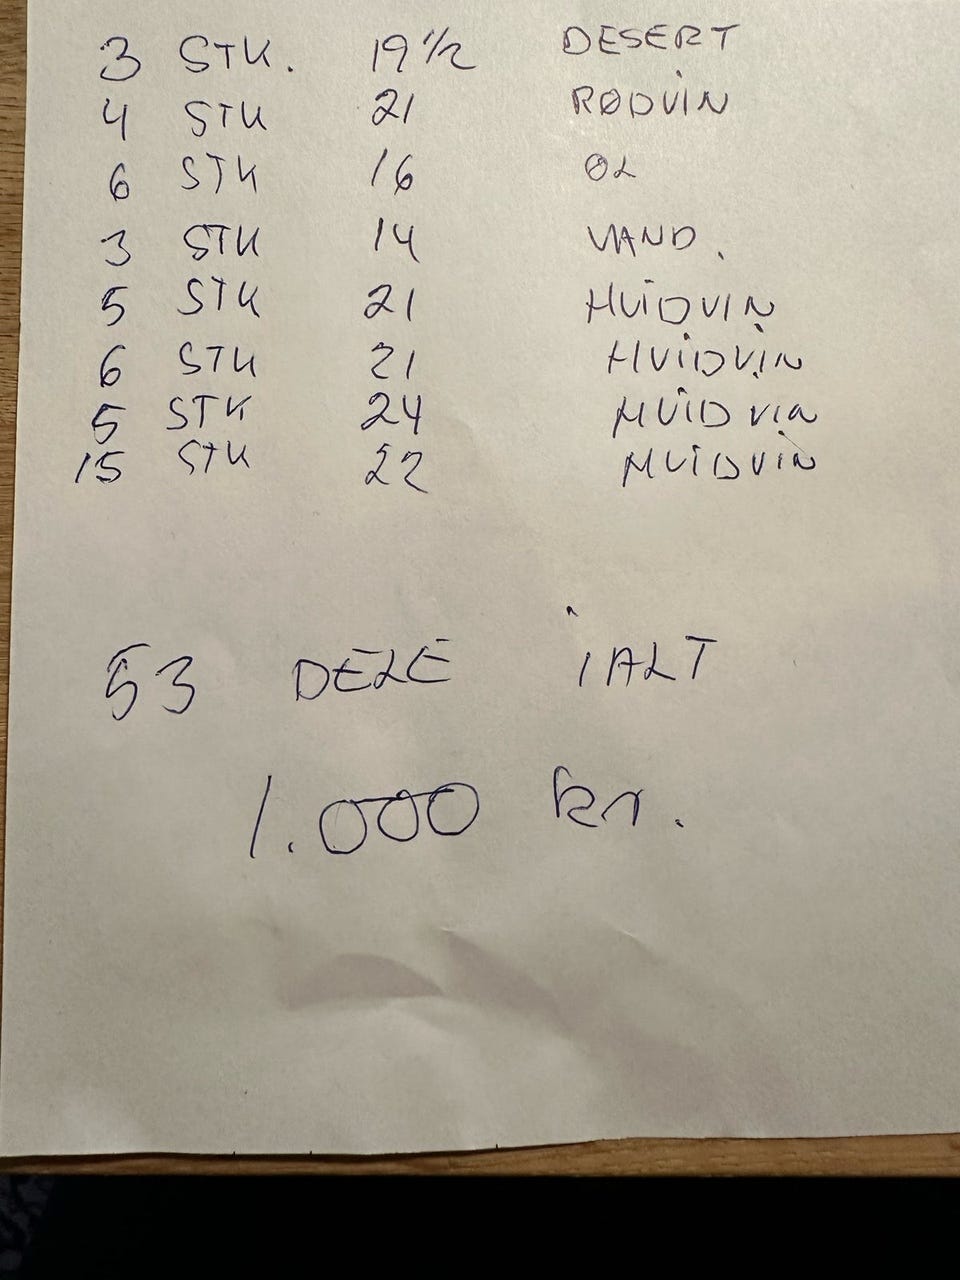 3 STK. 19 1/2 DESERT
4 STK 21 RØDVIN
6 STK 16 ØL
3 STK 14 VAND.
5 STK 21 HVIDVIN
6 STK 21 HVIDVIN
5 STK 24 HVIDVIN
15 STK 22 HVIDVIN
53 DELE IALT
1.000 kr.